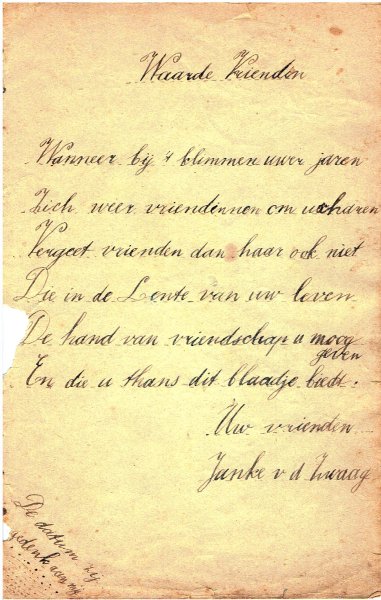 Waarde Vrienden
Wanneer bij 't klimmen uwer jaren
Zich weer vriendinnen om u scharen
Vergeet vrienden dan haar ook niet
Die in de Lente van uw leven
De hand van vriendschap u moog
geven
En die u thans dit blaadje biedt.
Uw vrienden
Janke v d Zwaag
De datum zij
gedenk van mij